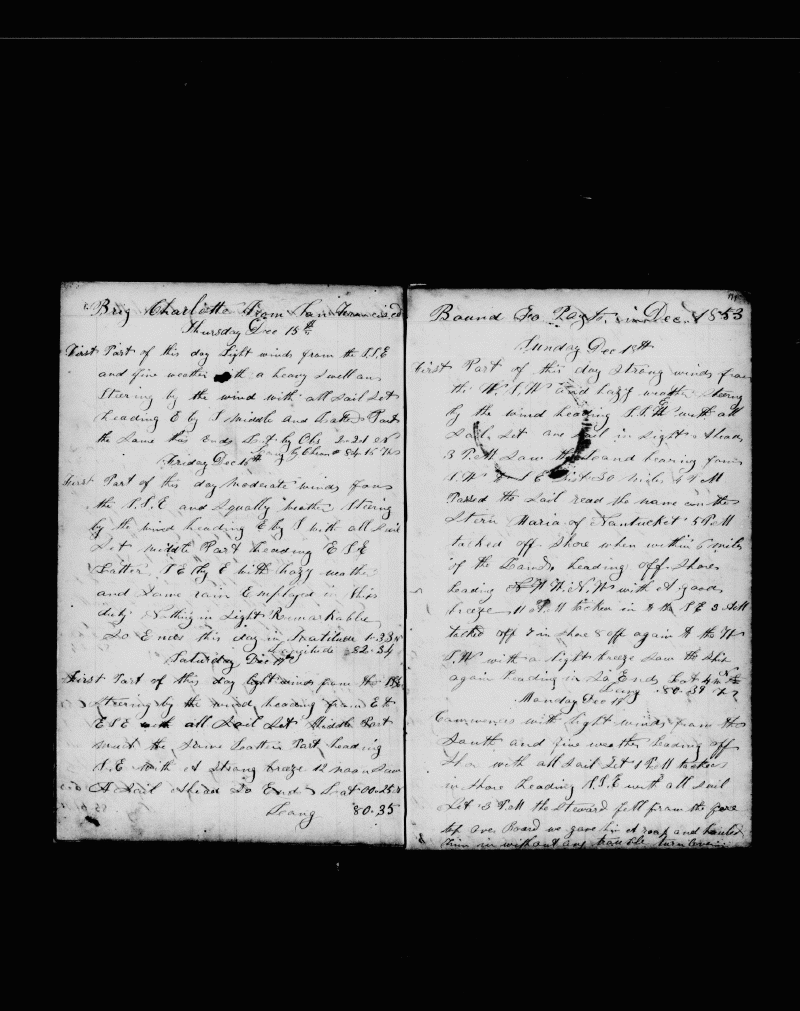 Brig Charlotte From San Francisco
Thursday Dec 15th
First Part of this day Light winds from the S.S.E
and fine weather with a heavy Swell an
Steering by the wind with all Sail Set
heading E by S Middle and Latter Part
the Same this Ends Lat by Obs 2-21 N
Long by Chron 84.15 Ws
Friday Dec 16th
First Part of this day moderate winds from
the S.S.E and Squally weather Steering
by the wind heading E by S with all Sail
Set Middle Part heading E S E
Latter S E by E with hazy weather
and Some rain Employed in Ship
duty Nothing in Sight Remarkable
So Ends this day in Latitude 1.33 N
Longitude 82.34
Saturday Dec 17th
First Part of this day light winds from the
Steering by the wind heading from E to
E S E with all Sail Set Middle Part
much the Same Latter Part heading
S.E with A Strong breeze 12 noon Saw
A Sail Ahead So Ends Lat 00.25 N
Long 80.35
Bound To Payta in Dec 1853
Sunday Dec 18th
First Part of this day Strong winds from
the W.S.W and hazy weather Steering
by the wind heading S.S.E with all
Sail Set one Sail in Sight Ahead
3 P.M Saw the Land bearing from
S.W to S E Dist 30 miles 4 P M
Passed the Sail read the name on the
Stern Maria of Nantucket 5 P.M
tacked off Shore when within 6 miles
of the Land heading off Shore
heading W.N.W with A good
breeze 11 P.M tacken in to the S E 3 A.M
tacked off 7 in Shore 8 off again to the W
S.W with a light breeze Saw the Ship
again heading in So Ends Lat
Long 80.39
Monday Dec 19
Commences with Light winds from the
South and fine weather heading off
Shor with all Sail Set 1 P.M tacken
in Shore heading S.S.E with all Sail
Set 3 P.M the Steward fell from the fore
top over Board we gave him A roap and hauled
him in without any trouble